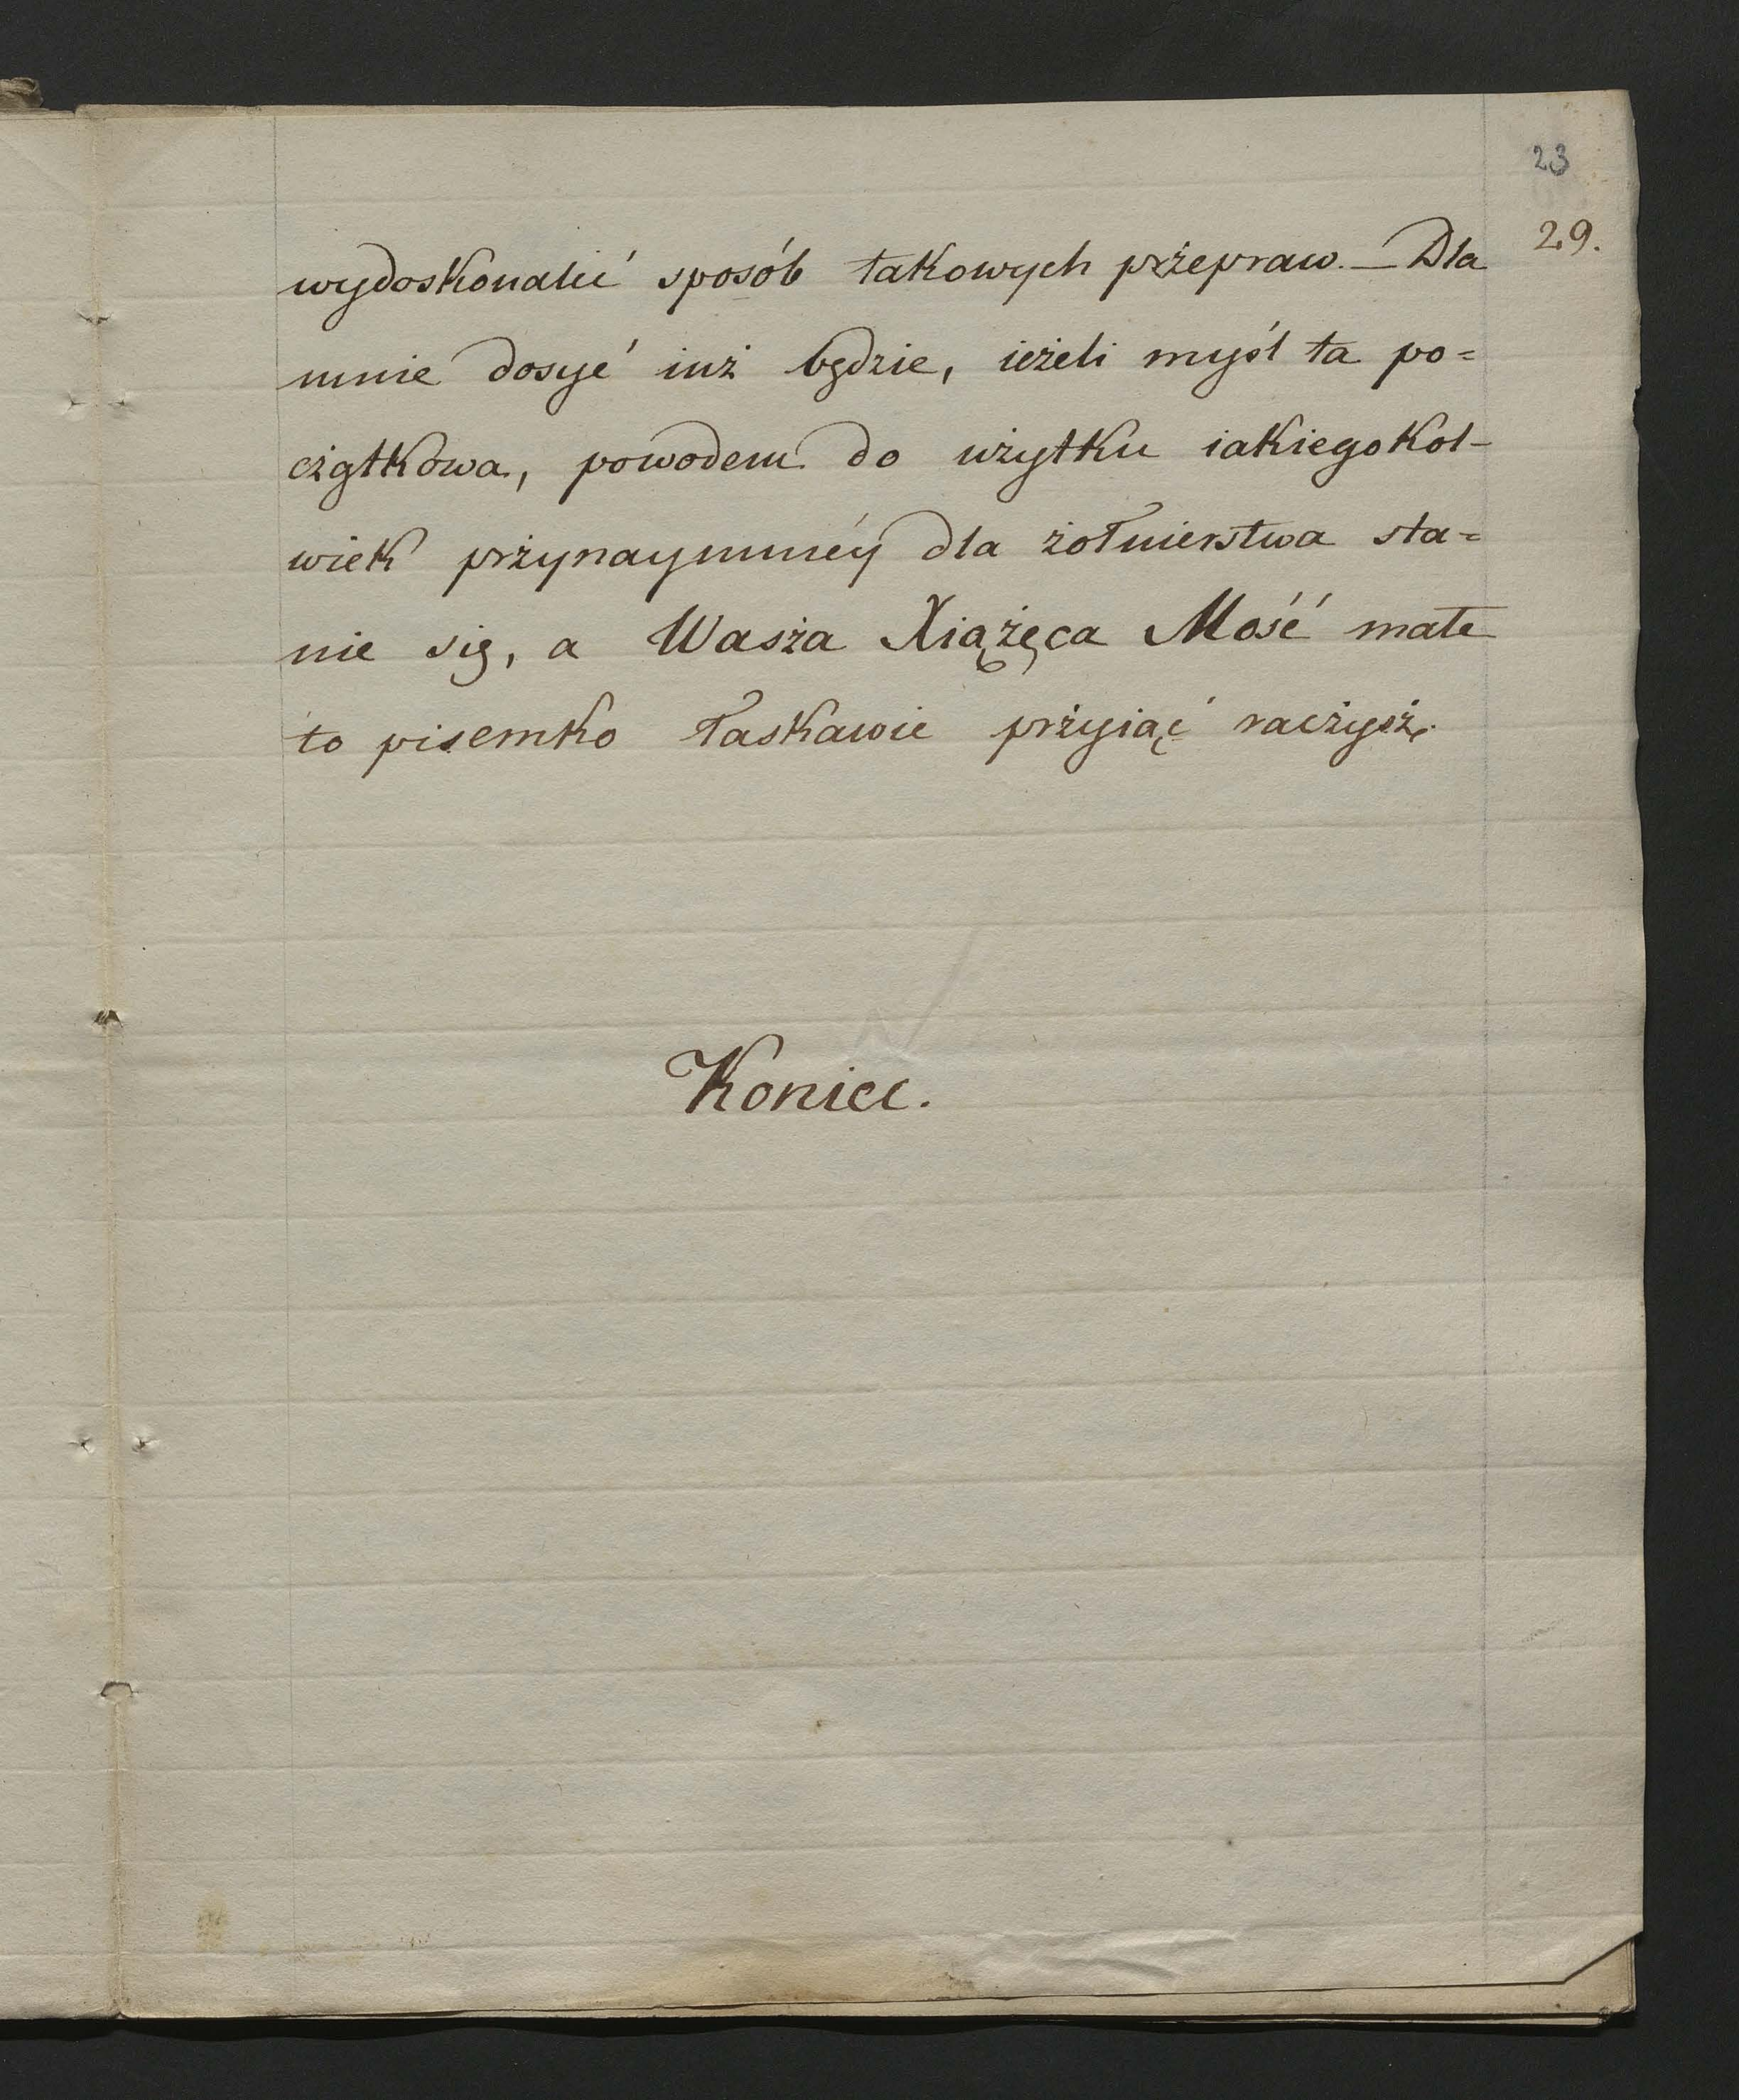 23
29.
wydoskonalić sposób takowych przepraw. — Dla
mnie dosyć iuż będzie, ieżeli myśl ta po=
czątkowa, powodem do użytku iakiegokol-
wiek przynaymniéy dla żołnierstwa sta=
nie się, a Wasza Xiążęca Mość małe
to pisemko łaskawie przyiąć raczysz.
Koniec.